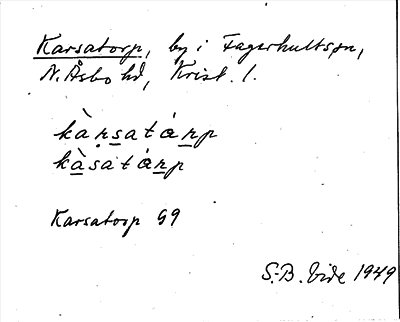 Karsatorp, by i Fagerhultsn,
N. Åsbo hd, Krist. l.
kàrsatárp
kàsatárp
Karsatorp G9
S.-B. Vide 1949